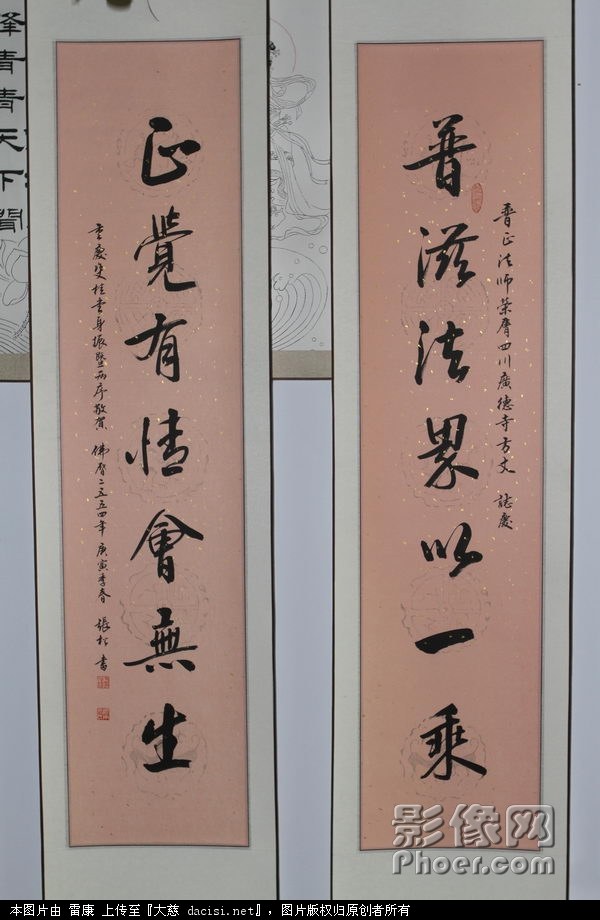 普滋法界以一乘
普正法師榮膺四川廣德寺方丈 誌慶
正覺有情會無生
重慶雙桂堂身振暨兩序敬賀 佛曆二五五四年 庚寅季春 張松 書
峰青青天下
影像网
Phoer.com
本图片由 雷康 上传至『大慈 dacisi.net』，图片版权归原创者所有